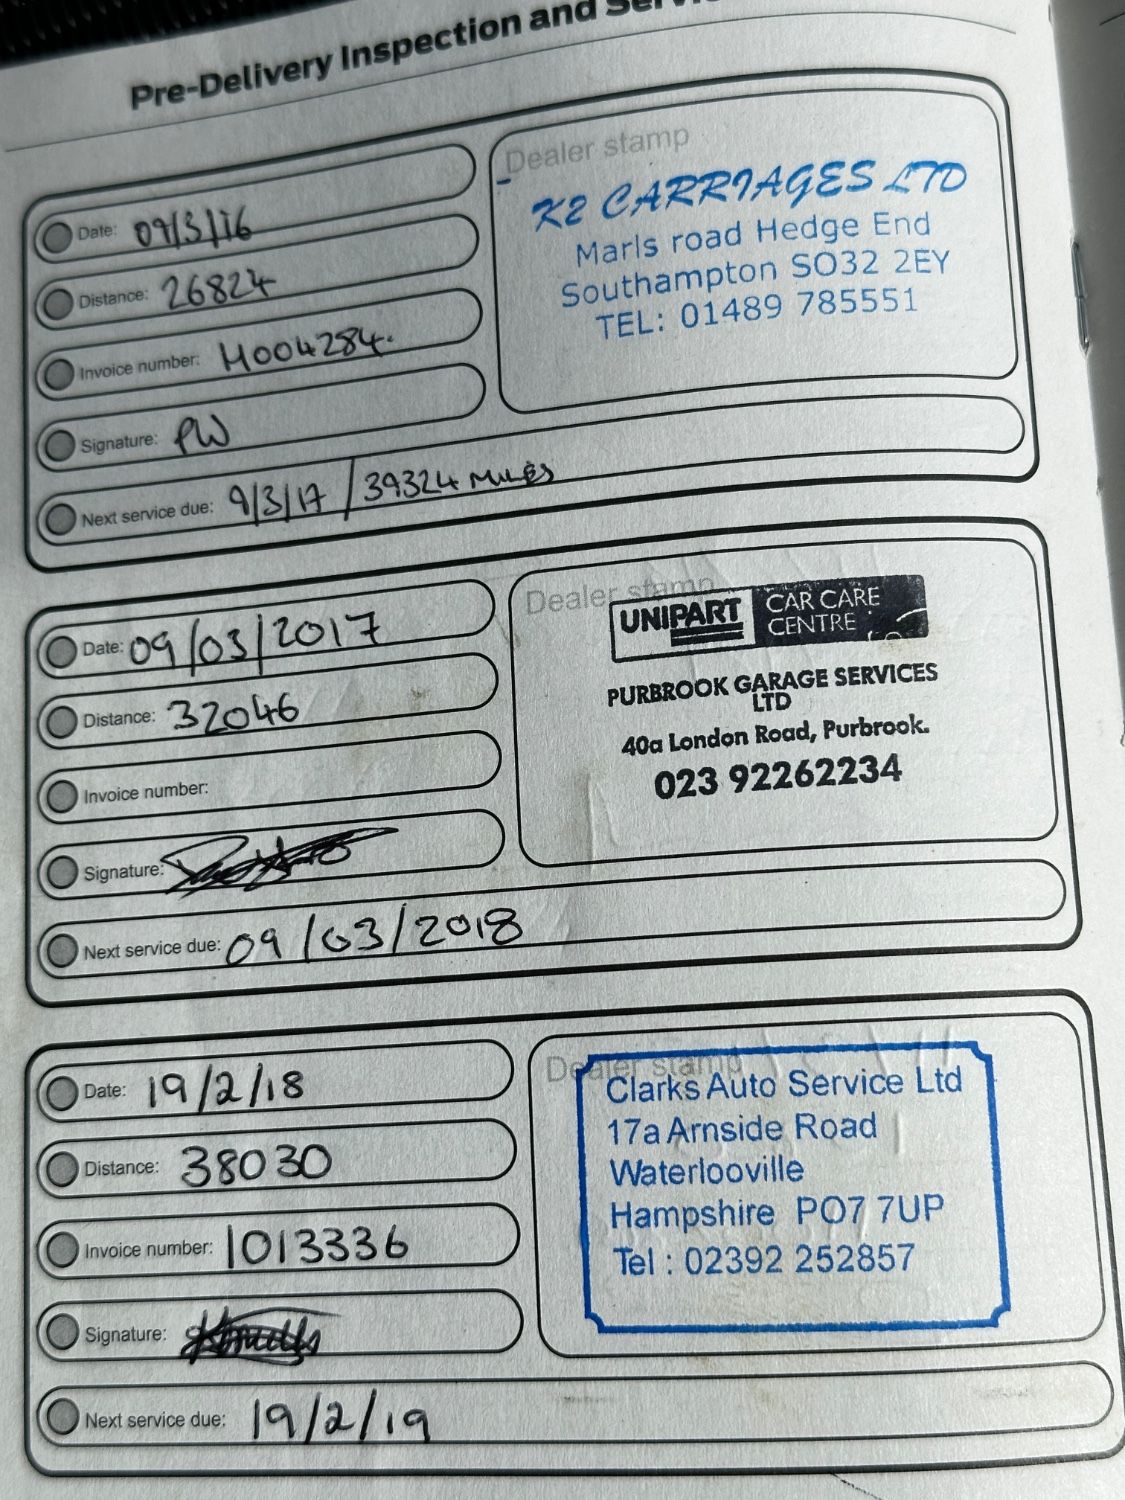 Pre-Delivery Inspection and
Dealer stamp
K2 CARRIAGES LTD
Marls road Hedge End
Southampton SO32 2EY
TEL: 01489 785551
Date: 09/3/16
Distance: 26824
Invoice number: H004284.
Signature: PW
Next service due: 9/3/17 / 39324 MILES
Dealer stamp
UNIPART CAR CARE
CENTRE
PURBROOK GARAGE SERVICES
LTD
40a London Road, Purbrook.
023 92262234
Date: 09/03/2017
Distance: 32046
Invoice number:
Signature:
Next service due: 09/03/2018
Dealer stamp
Clarks Auto Service Ltd
17a Arnside Road
Waterlooville
Hampshire PO7 7UP
Tel : 02392 252857
Date: 19/2/18
Distance: 38030
Invoice number: 1013336
Signature:
Next service due: 19/2/19